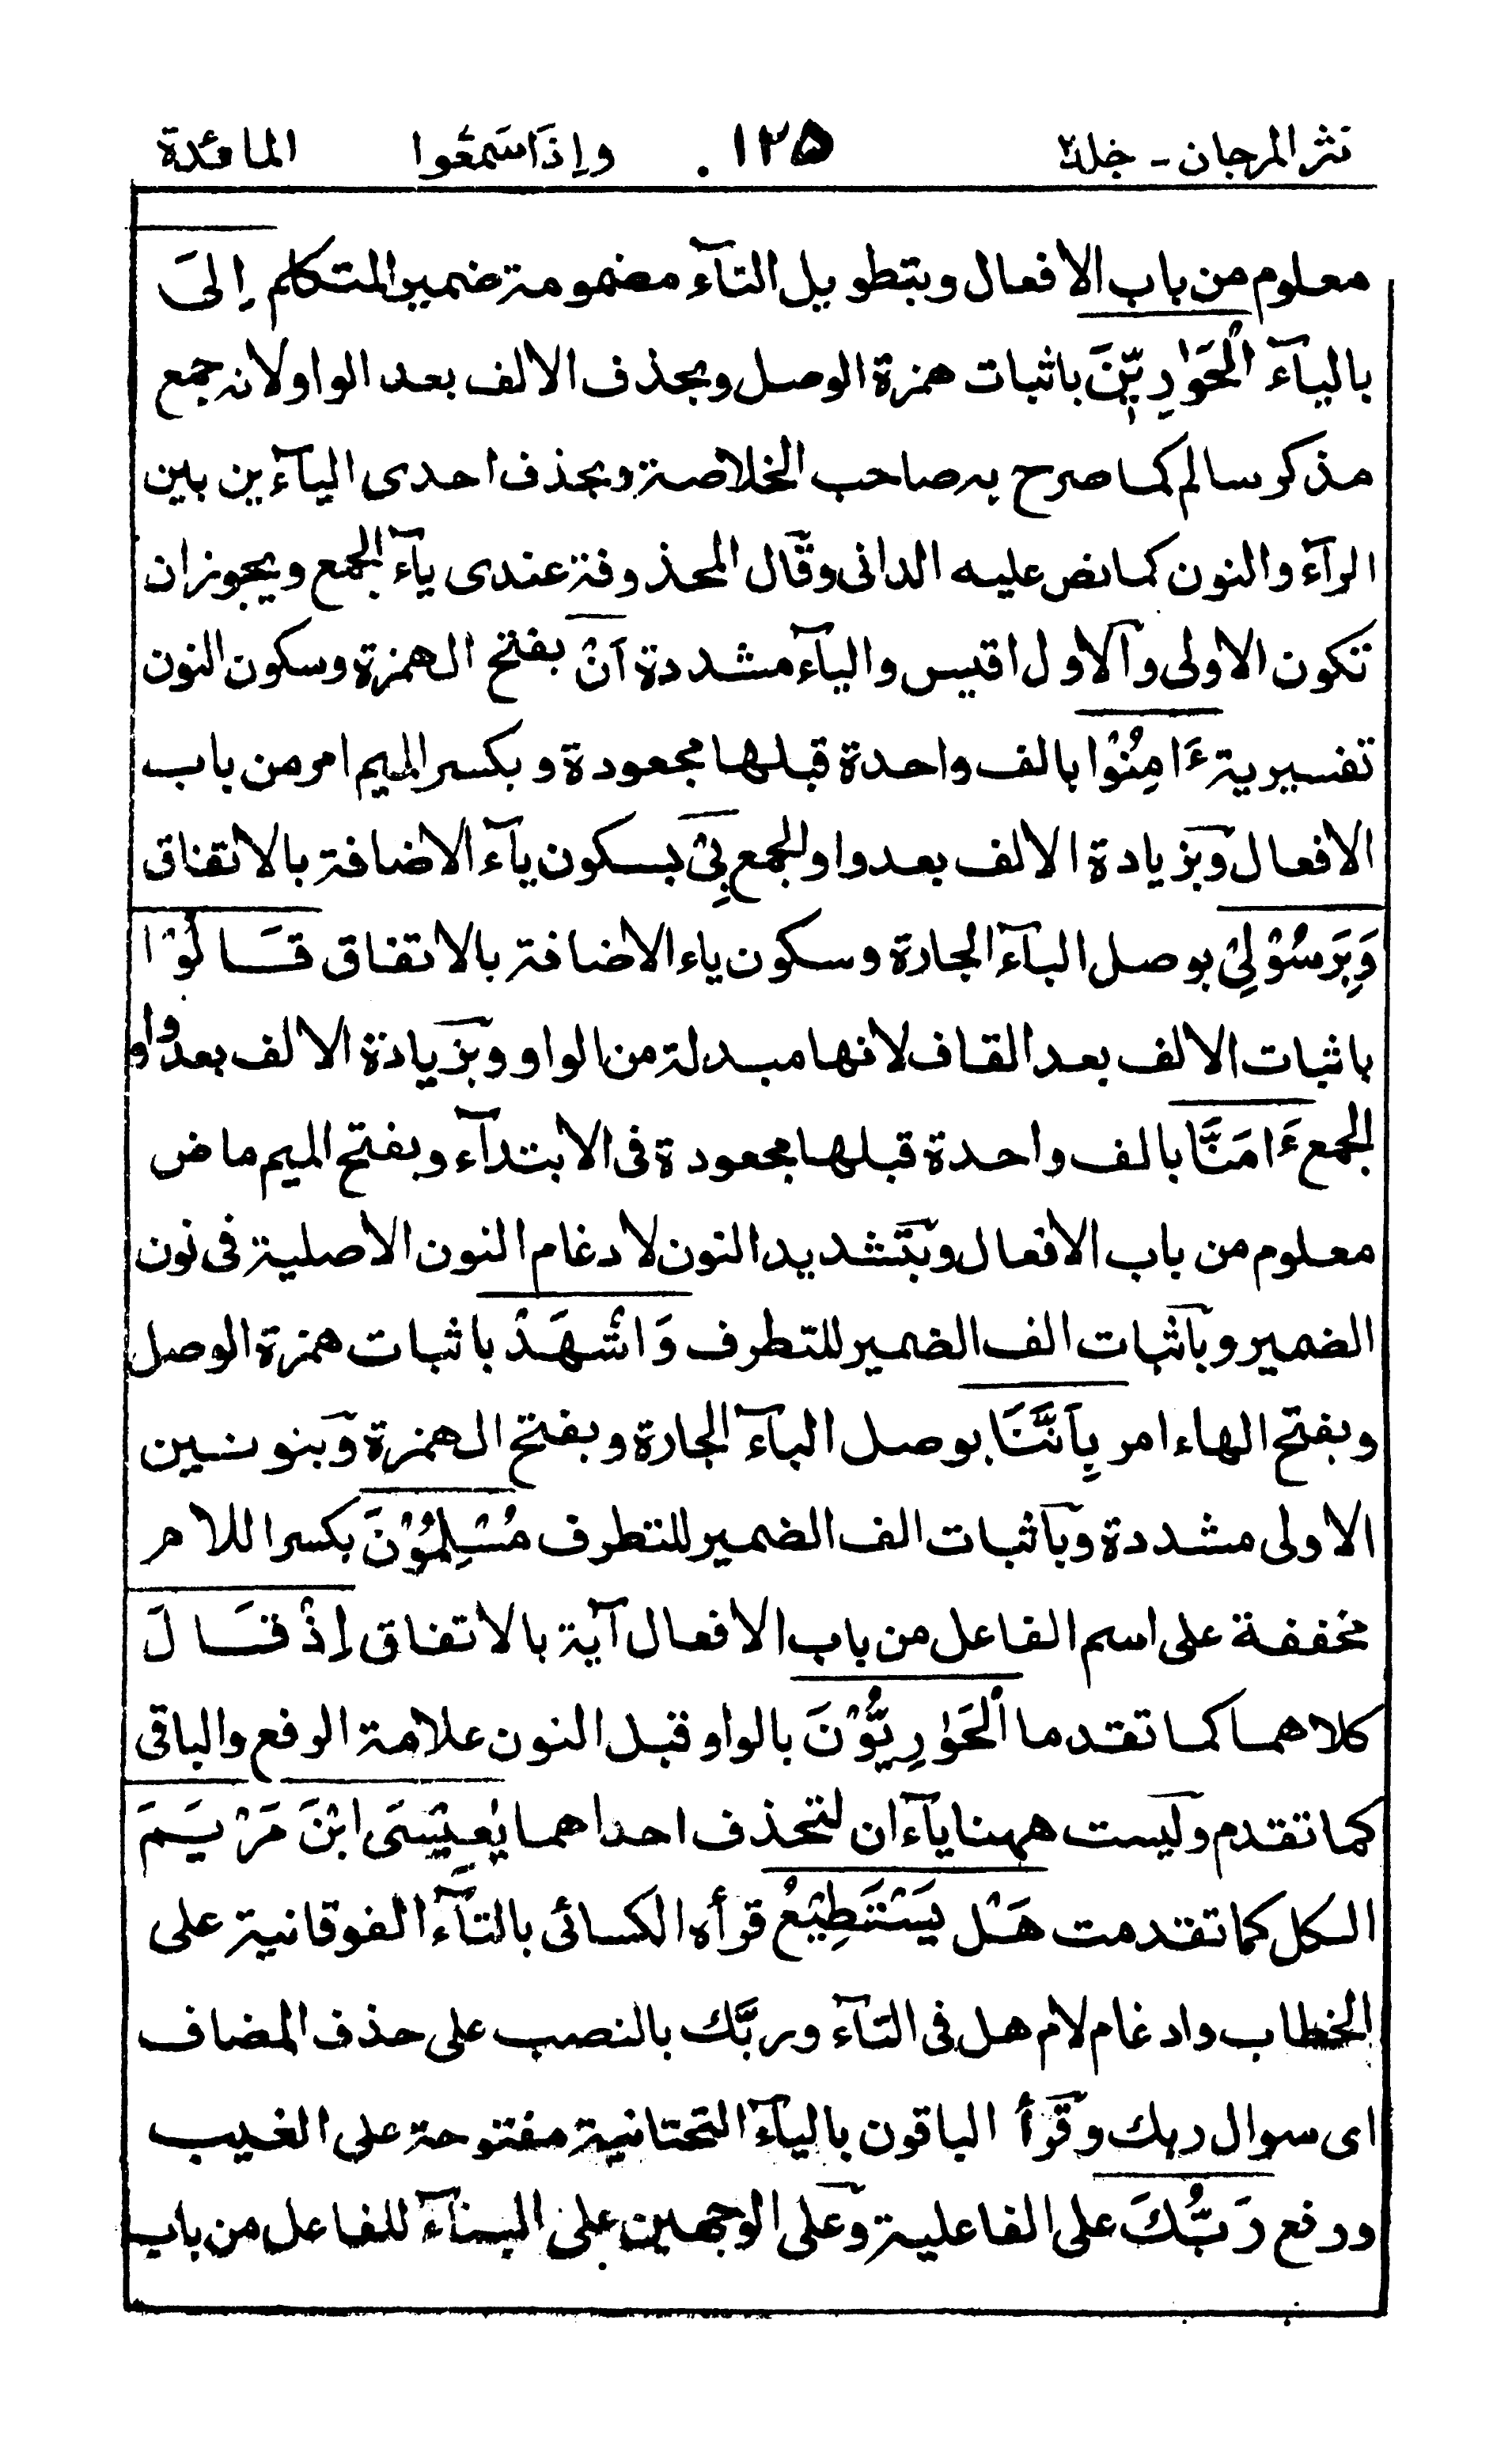 نثر المرجان - جلد٢ ١٢٥ واذا سمعوا المائدة
معلوم من باب الافعال وبتطويل التآء مضمومة ضمير المتكلم إِلَى
باليآء اْلحَوَارِيّٖنَ باثبات همزة الوصل وبحذف الالف بعد الواو لانه جمع
مذكر سالم كما صرح به صاحب الخلاصة وبحذف احدى اليآءين بين
الرآء والنون كما نص عليه الدانى وقال المحذوفة عندى يآء الجمع ويجوز ان
تكون الاولى والاول اقيس واليآء مشددة اَنْ بفتح الهمزة وسكون النون
تفسيرية ءَامِنُوْا بالف واحدة قبلها مجعودة وبكسر الميم امر من باب
الافعال وبزيادة الالف بعد واو الجمع بِىْ بسكون يآء الاضافة بالاتفاق
وَبِرَسُوْلِىْ بوصل البآء الجارة وسكون ياء الاضافة بالاتفاق قَالُوْا
باثبات الالف بعد القاف لانها مبدلة من الواو وبزيادة الالف بعد واو
الجمع ءَامَنَّا بالف واحدة قبلها مجعودة فى الابتدآء وبفتح الميم ماض
معلوم من باب الافعال وبتشديد النون لادغام النون الاصلية فى نون
الضمير وباثبات الف الضمير للتطرف وَاشْهَدْ باثبات همزة الوصل
وبفتح الهاء امر بِاَنَّنَا بوصل البآء الجارة وبفتح الهمزة وبنونين
الاولى مشددة وباثبات الف الضمير للتطرف مُسْلِمُوْنَ بكسر اللام
مخففة على اسم الفاعل من باب الافعال آية بالاتفاق اِذْ قَالَ
كلاهما كما تقدما اْلحَوَارِيُّوْنَ بالواو قبل النون علامة الرفع والباقى
كما تقدم وليست ههنا يآءان لتحذف احداهما يٰعِيْسَى ابْنَ مَرْيَمَ
الكل كما تقدمت هَلْ يَسْتَطِيْعُ قرأه الكسائى بالتآء الفوقانية على
الخطاب وادغام لام هل فى التآء وربَّك بالنصب على حذف المضاف
اى سوال ربك وقرأ الباقون باليآء التحتانية مفتوحة على الغيب
ورفع رَبُّكَ على الفاعلية وعلى الوجهين على البنآء للفاعل من باب